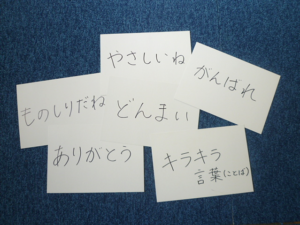 やさしいね
がんばれ
ものしりだね
どんまい
ありがとう
キラキラ
言葉(ことば)